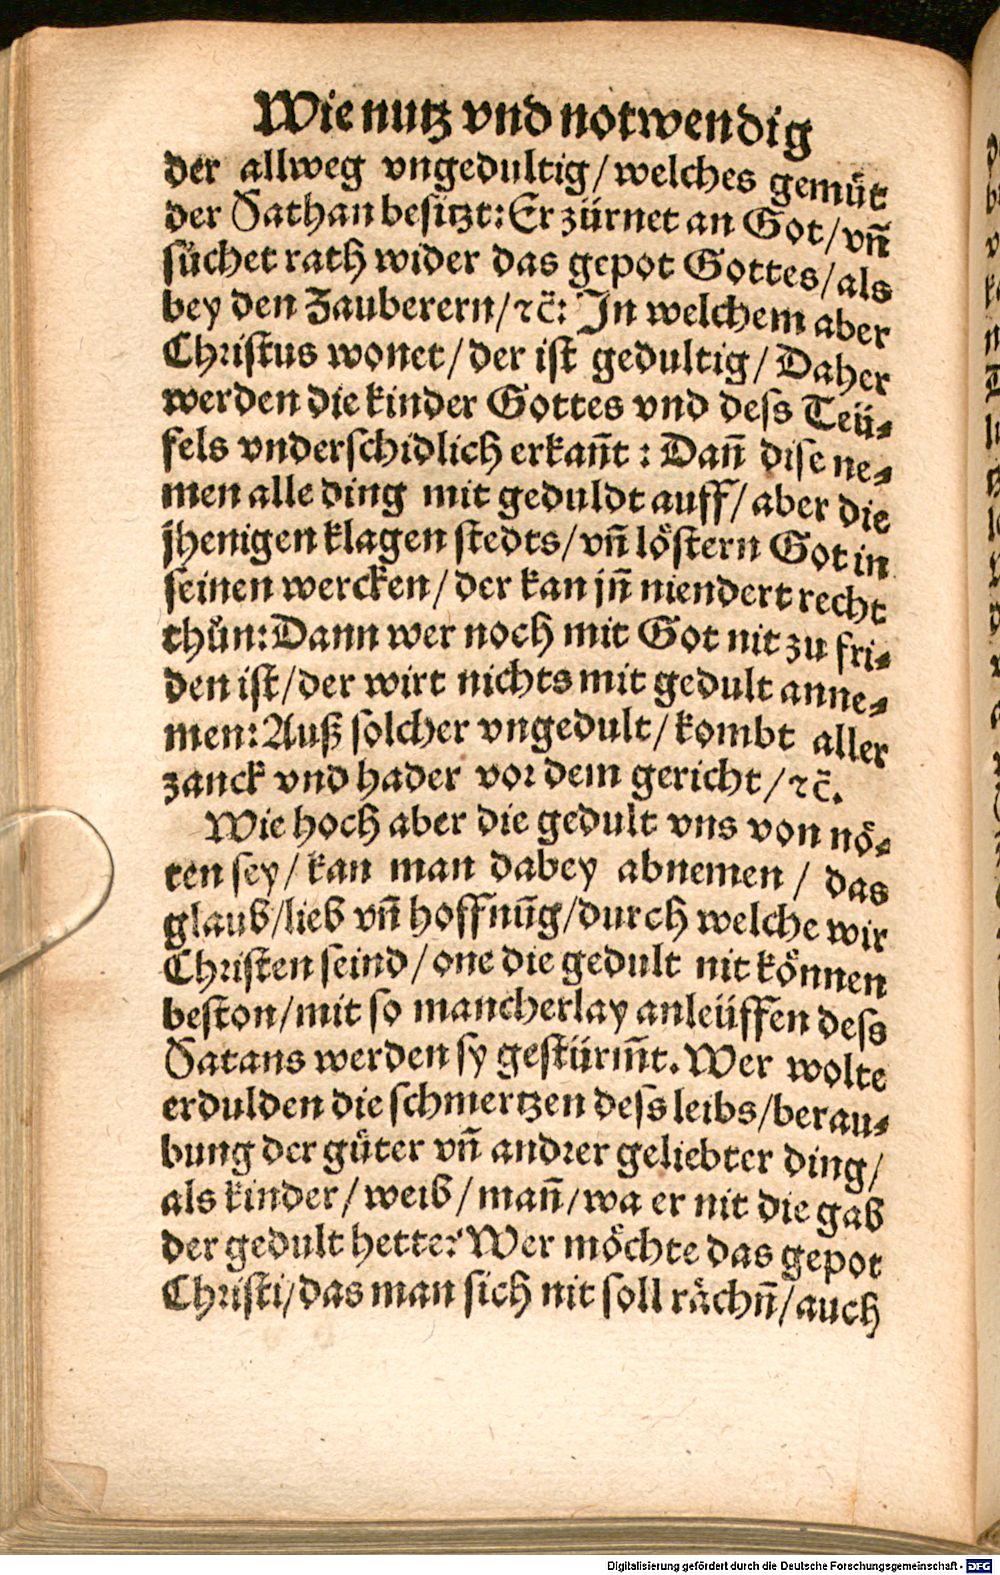 Wie nutz vnd notwendig
der allweg vngedultig/welches gemüt
der Sathan besitzt: Er zürnet an Got/vñ
sůchet rath wider das gepot Gottes/als
bey den Zauberern/ꝛc̄: In welchem aber
Christus wonet/der ist gedultig/Daher
werden die kinder Gottes vnd dess Teü⸗
fels vnderschidlich erkañt: Dañ dise ne⸗
men alle ding mit geduldt auff/aber die
jhenigen klagen stedts/vñ löstern Got in
seinen wercken/der kan jñ niendert recht
thůn: Dann wer noch mit Got nit zu fri⸗
den ist/der wirt nichts mit gedult anne⸗
men: Auß solcher vngedult/kombt aller
zanck vnd hader vor dem gericht/ꝛc̄.
Wie hoch aber die gedult vns von nö⸗
ten sey/kan man dabey abnemen/das
glaub/lieb vñ hoffnũg/durch welche wir
Christen seind/one die gedult nit können
beston/mit so mancherlay anleüffen dess
Satans werden sy gestürm̃t. Wer wolte
erdulden die schmertzen dess leibs/berau⸗
bung der güter vñ andrer geliebter ding/
als kinder/weib/mañ/wa er nit die gab
der gedult hette? Wer möchte das gepot
Christi/das man sich nit soll rächñ/auch
Digitalisierung gefördert durch die Deutsche Forschungsgemeinschaft - DFG